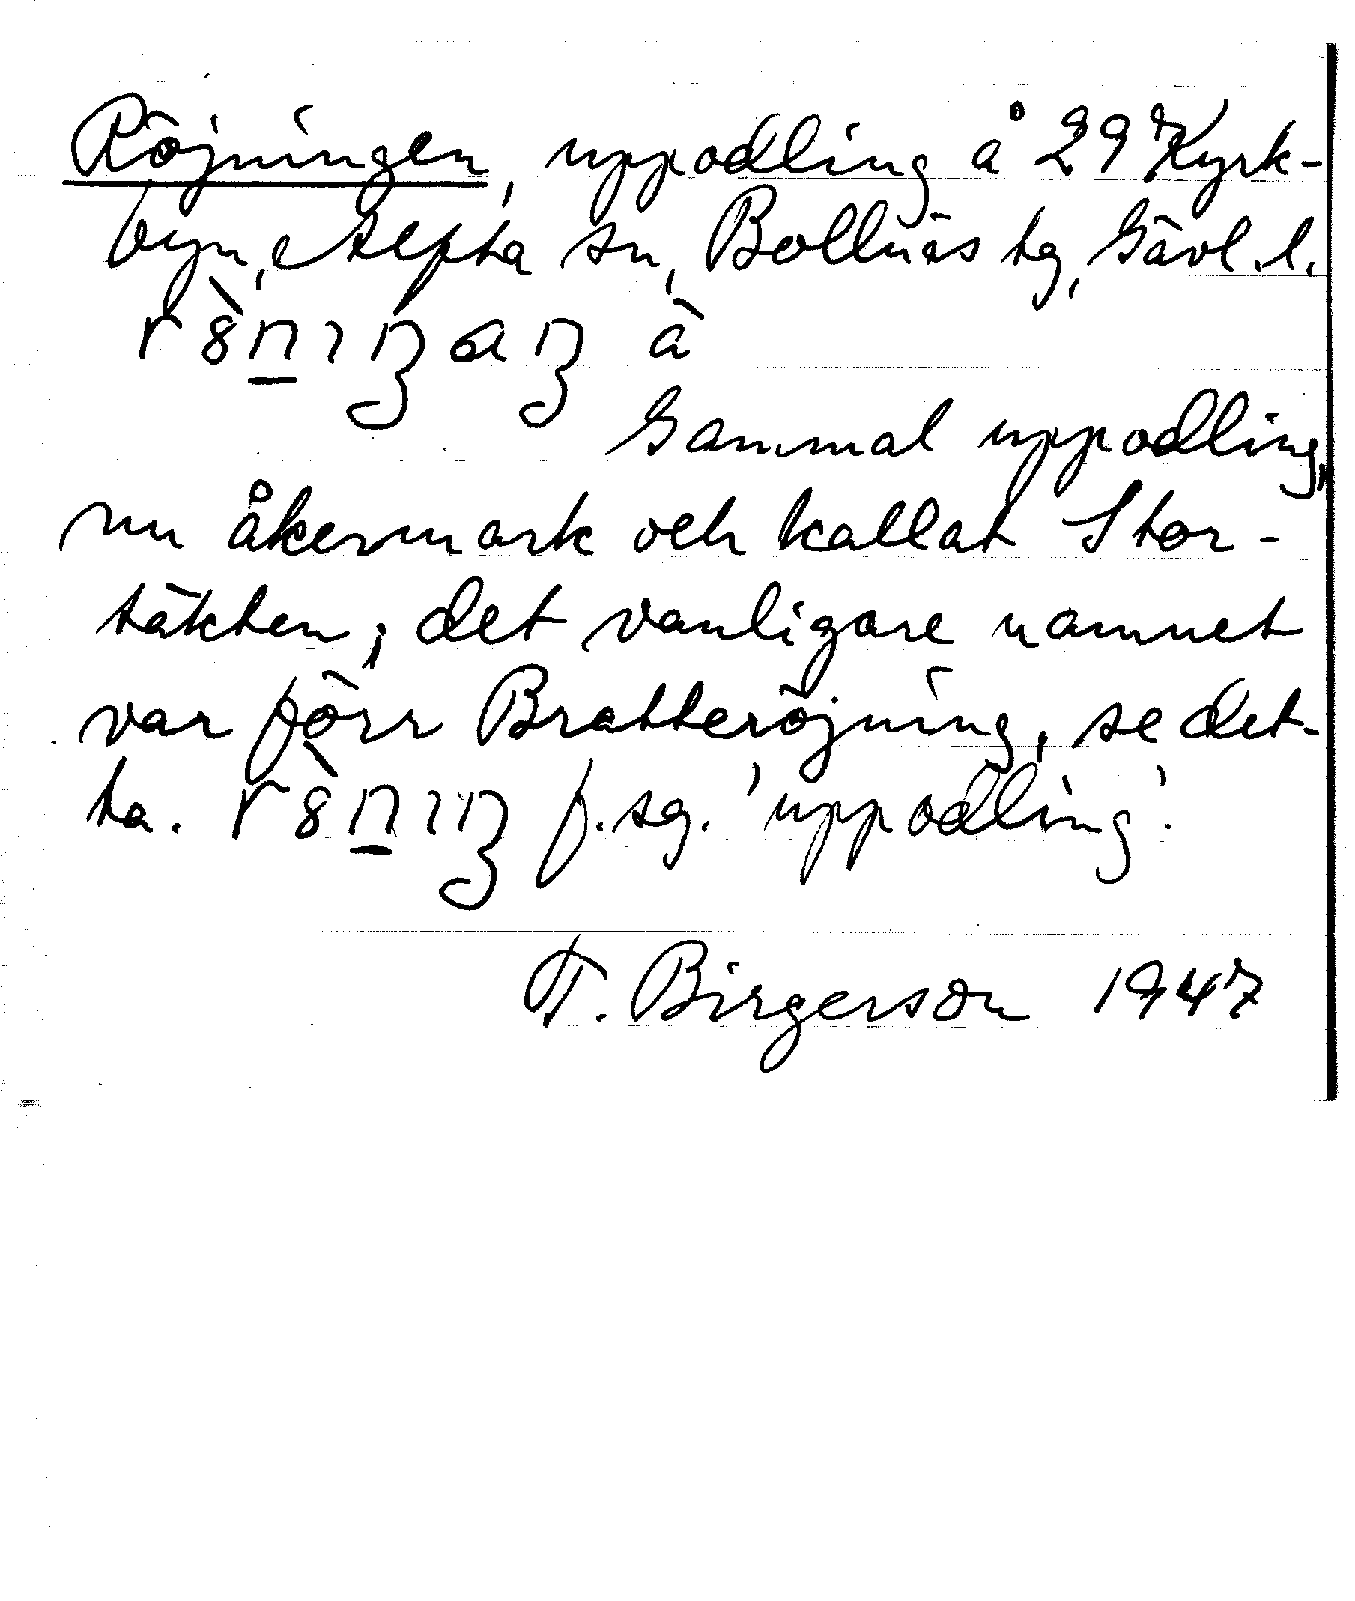 Röjningen, uppodling å 29 Kyrk-
byn, Alfta sn, Bollnäs tg, Gävl. l.
à
Gammal uppodling,
nu åkermark och kallat Stor-
täkten; det vanligare namnet
var förr Bratteröjning, se det-
ta. f. sg. 'uppodling'.
F. Birgerson 1947